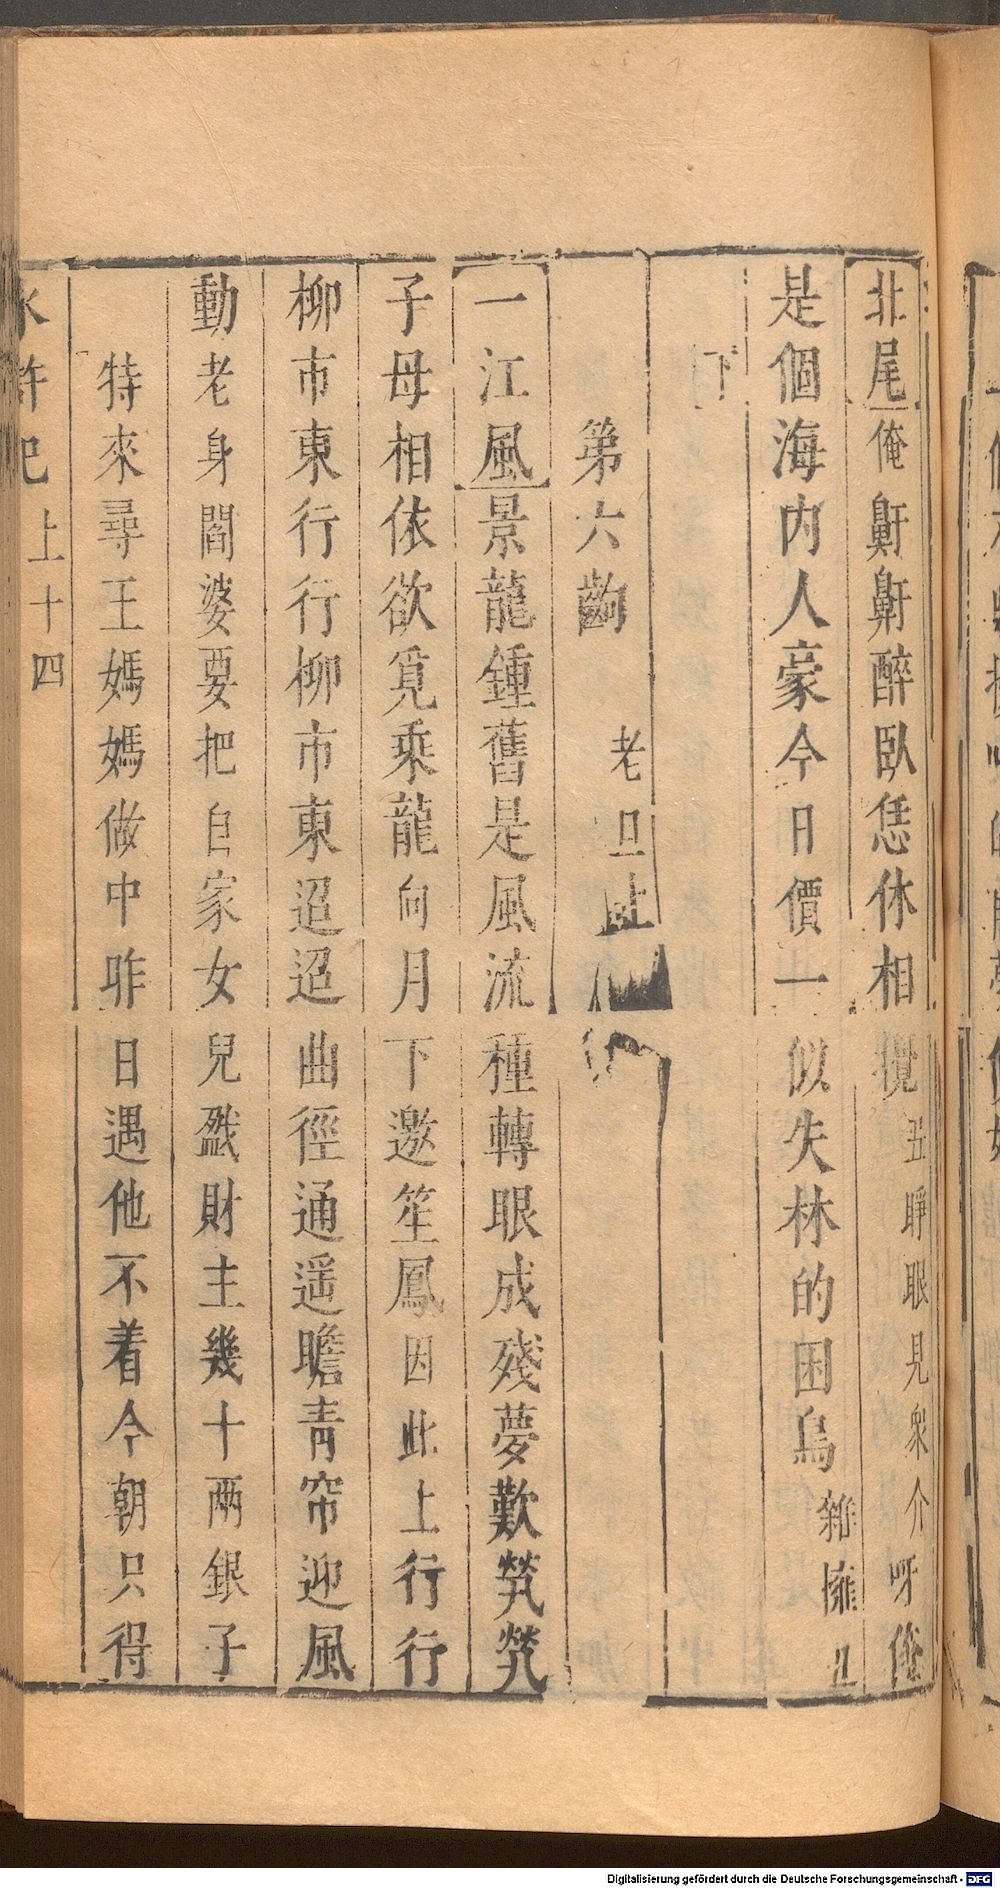 北尾俺鼾鼾醉臥恁休相攪丑睜眼見衆介呀俺
是個海内人豪今日價一似失林的困鳥雜擁丑
下
第六齣　老旦上
一江風景龍鍾舊是風流種轉眼成殘夢歎煢煢
子母相依欲覓乘龍向月下邀笙鳳因此上行行
柳市東行行柳市東迢迢曲徑通遥瞻青帘迎風
動老身閻婆要把自家女兒戤財主幾十兩銀子
特來尋王媽媽做中昨日遇他不着今朝只得
水滸記上十四
Digitalisierung gefördert durch die Deutsche Forschungsgemeinschaft - DFG